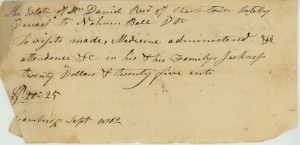 The Estate of Mr David Reed of Charlestown lately
to Nahum Ball Dr
To visits made, Medicine administered, &
attendance &c in his & his Family's Sickness
twenty Dollars & twenty five cents
$20=25
Cambridge Sept